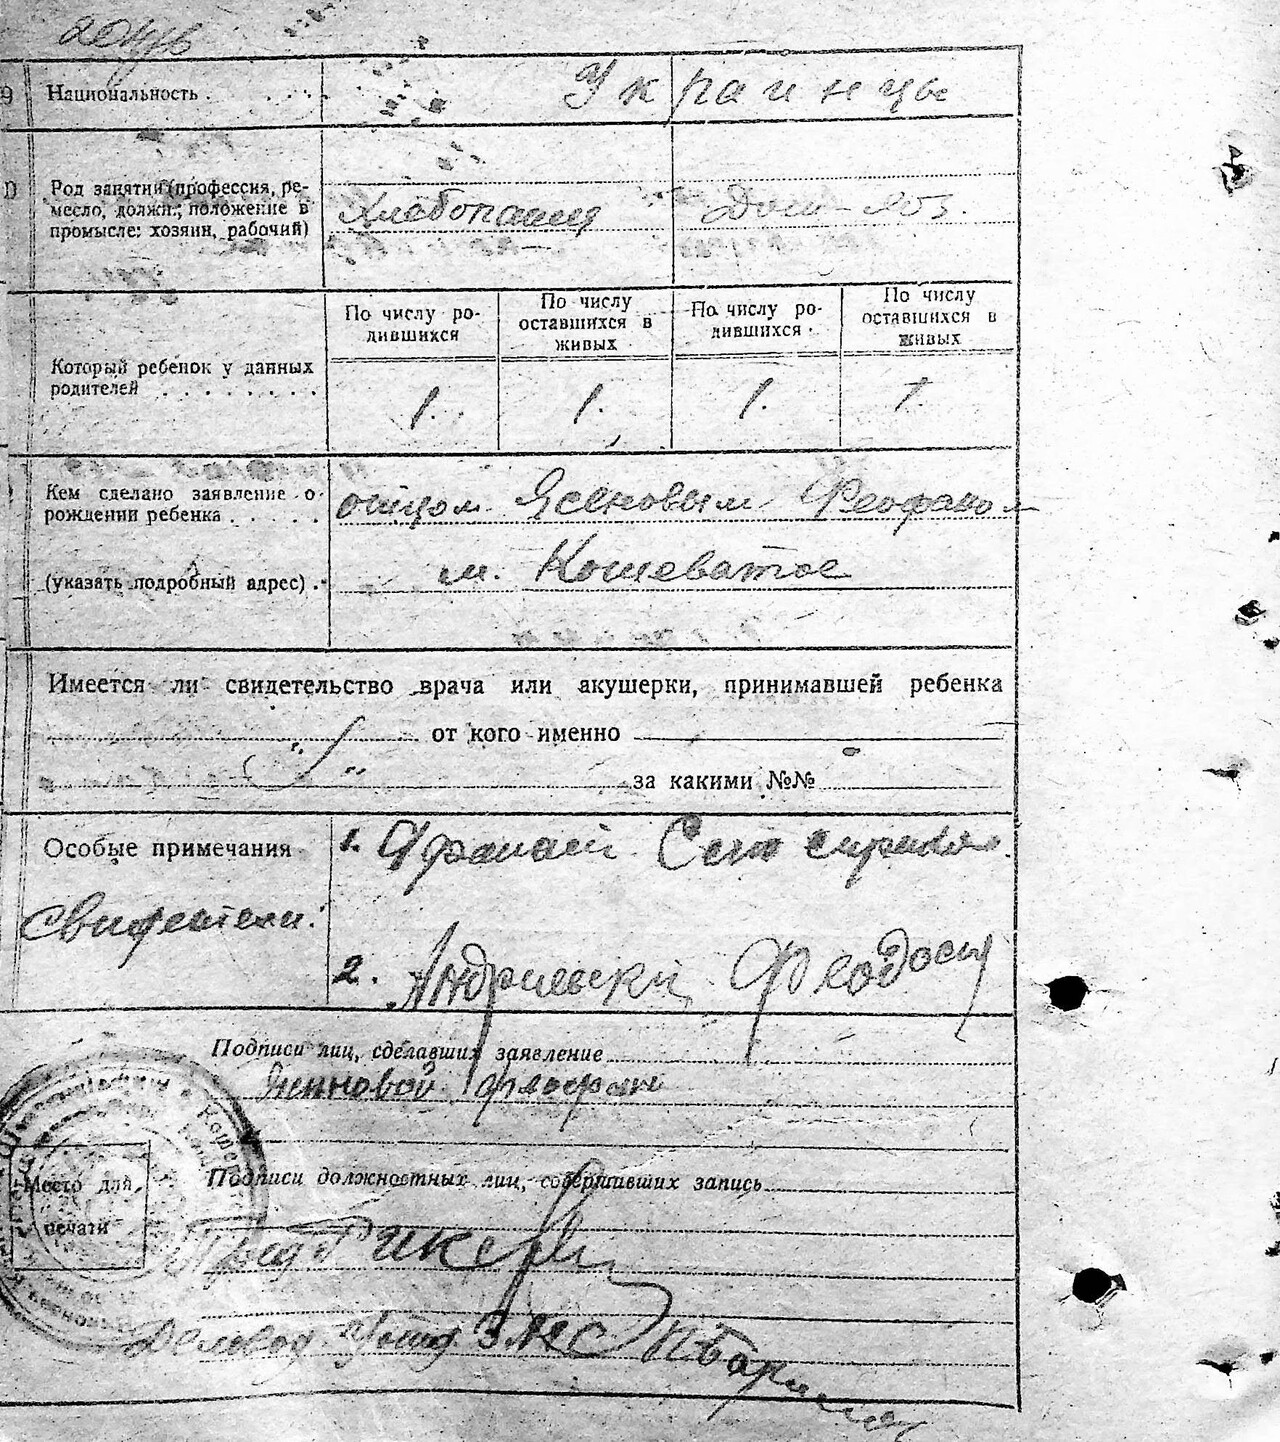 9 Национальность . Украинцы
Род занятий (профессия, ре-
месло, должн., положение в
промысле: хозяин, рабочий)
Хлебопашец Дом-хоз.
По числу ро-
дившихся
По числу
оставшихся в
живых
По числу ро-
дившихся
По числу
оставшихся в
живых
Который ребенок у данных
родителей . . . . . . . .
1. 1. 1. 1.
Кем сделано заявление о
рождении ребенка . . . . .
отцом Ясеновым Феофаном
(указать подробный адрес) . м. Кошеватое
Имеется ли свидетельство врача или акушерки, принимавшей ребенка
от кого именно
за какими №№
Особые примечания
свидетели:
1. Афанасий
2. Феодосий
Подписи лиц, сделавших заявление
Подписи должностных лиц, совершивших запись
Место для
печати
Деловод ЗАГС